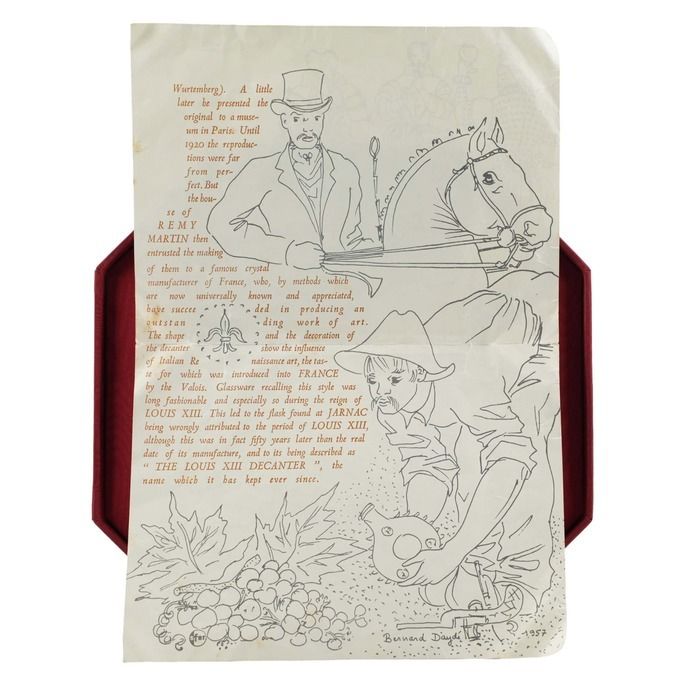 Wurtemberg). A little
later he presented the
original to a muse-
um in Paris. Until
1920 the reproduc-
tions were far
from per-
fect. But
the hou-
se of
REMY
MARTIN then
entrusted the making
of them to a famous crystal
manufacturer of France, who, by methods which
are now universally known and appreciated,
have succee ded in producing an
outstan ding work of art.
The shape and the decoration of
the decanter show the influence
of Italian Re naissance art, the tas-
te for which was introduced into FRANCE
by the Valois. Glassware recalling this style was
long fashionable and especially so during the reign of
LOUIS XIII. This led to the flask found at JARNAC
being wrongly attributed to the period of LOUIS XIII,
although this was in fact fifty years later than the real
date of its manufacture, and to its being described as
" THE LOUIS XIII DECANTER ", the
name which it has kept ever since.
Bernard Daydé
1957